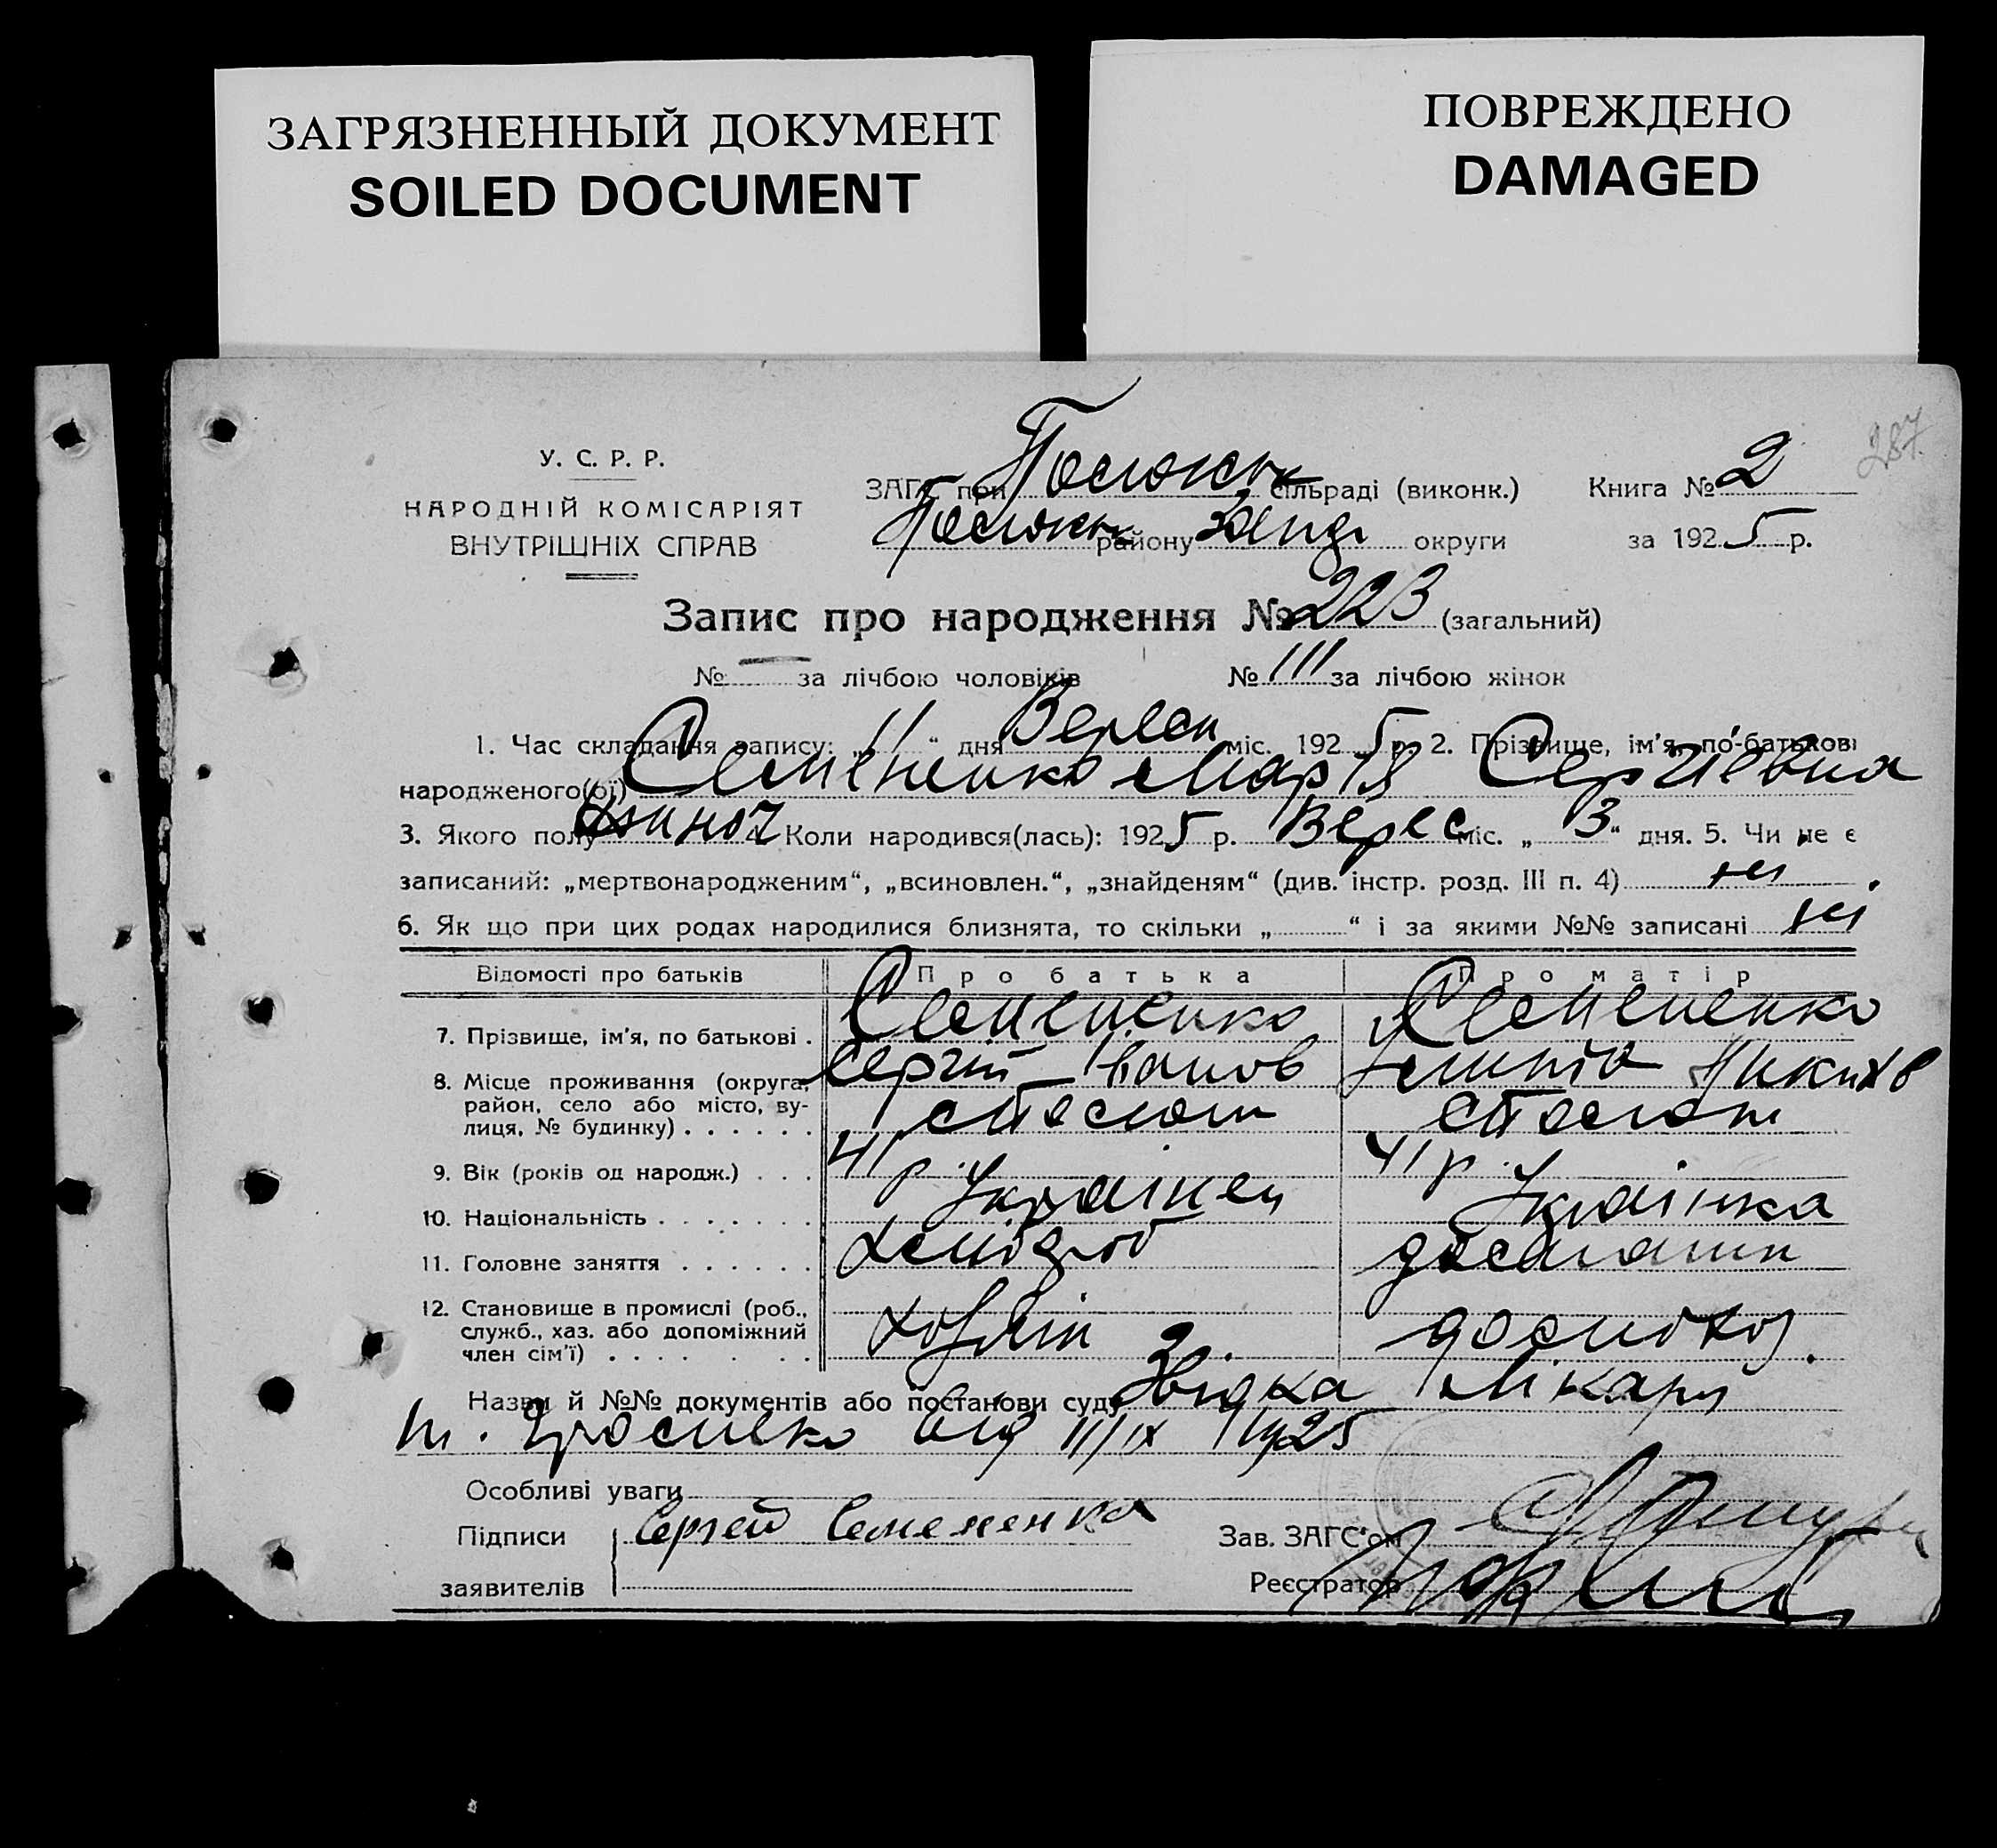 ЗАГРЯЗНЕННЫЙ ДОКУМЕНТ
SOILED DOCUMENT
ПОВРЕЖДЕНО
DAMAGED
287
У. С. Р. Р.
НАРОДНІЙ КОМІСАРІЯТ
ВНУТРІШНІХ СПРАВ
ЗАГС при сільраді (виконк.) Книга № 2
району округи за 1925 р.
Запис про народження № 223 (загальний)
№ — за лічбою чоловіків № 111 за лічбою жінок
1. Час складання запису: „11“ дня Вересн міс. 1925 р. 2. Прізвище, ім'я, по-батькові
народженого(ої) Семененко Марія Сергіевна
3. Якого полу жиноч 4. Коли народився(лась): 1925 р. Верес міс. „3“ дня. 5. Чи не є
записаний: „мертвонародженим“, „всиновлен.“, „знайденям“ (див. інстр. розд. III п. 4) ні
6. Як що при цих родах народилися близнята, то скільки „ “ і за якими №№ записані ні
Відомості про батьків Про батька Про матір
7. Прізвище, ім'я, по батькові . Семененко Семененко
Сергій Іванов
8. Місце проживання (округа,
район, село або місто, ву-
лиця, № будинку) . . . . . .
9. Вік (років од народж.) . . . 41 р. 41 р.
10. Національність . . . . . . . Українец Українка
11. Головне заняття . . . . . . Хлібороб
12. Становище в промислі (роб.,
служб., хаз. або допоміжний
член сім'ї) . . . . . . .
Назви й №№ документів або постанови суду Лікаря
від 11/IX 1925
Особливі уваги
Підписи Сергей Семененко Зав. ЗАГС'ом
заявителів Реєстратор